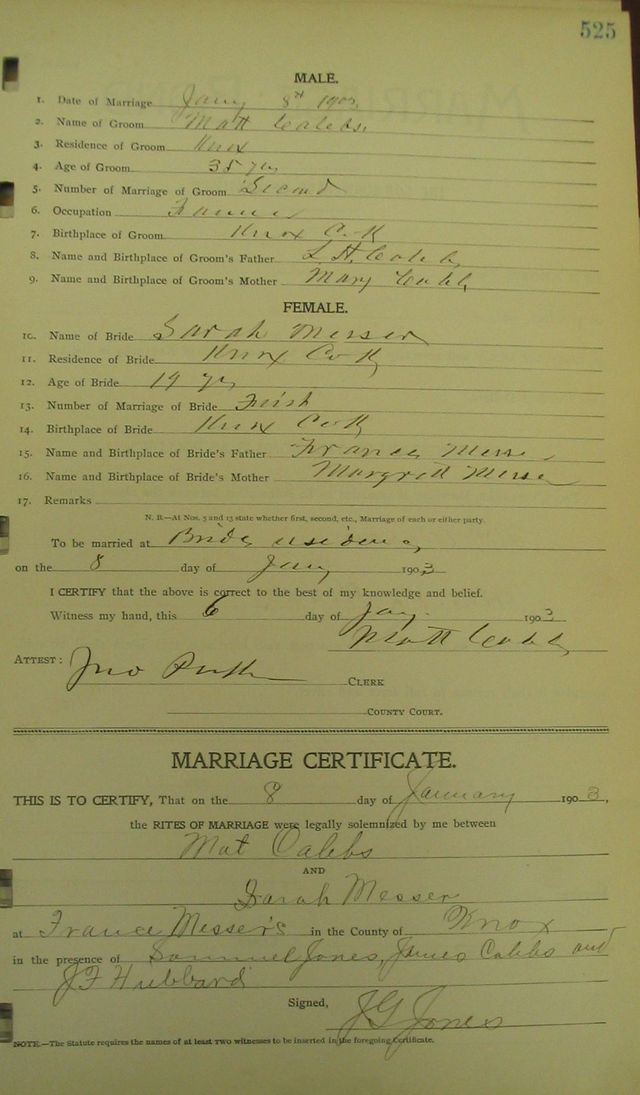 525
MALE.
1. Date of Marriage Jany 8th 1903
2. Name of Groom Matt Calebs.
3. Residence of Groom Knox
4. Age of Groom 35 yrs
5. Number of Marriage of Groom Second
6. Occupation Farmer
7. Birthplace of Groom Knox Co K
8. Name and Birthplace of Groom's Father L. H. Calebs
9. Name and Birthplace of Groom's Mother Mary Calebs
FEMALE.
10. Name of Bride Sarah Messer
11. Residence of Bride Knox Co Ky
12. Age of Bride 19 yrs
13. Number of Marriage of Bride First
14. Birthplace of Bride Knox Co Ky
15. Name and Birthplace of Bride's Father France Messer
16. Name and Birthplace of Bride's Mother Margrett Messer
17. Remarks
N. B.—At Nos. 5 and 13 state whether first, second, etc., Marriage of each or either party.
To be married at Brides residence
on the 8 day of Jany 1903
I CERTIFY that the above is correct to the best of my knowledge and belief.
Witness my hand, this 6 day of Jany. 1903
Matt Calebs
ATTEST: Jno CLERK
COUNTY COURT.
MARRIAGE CERTIFICATE.
THIS IS TO CERTIFY, That on the 8 day of January 1903,
the RITES OF MARRIAGE were legally solemnized by me between
Mat Calebs
AND
Sarah Messer
at France Messer's in the County of Knox
in the presence of Samuel Jones, James Calebs and
J F Hubbard
Signed,
J G Jones
NOTE.—The Statute requires the names of at least two witnesses to be inserted in the foregoing Certificate.